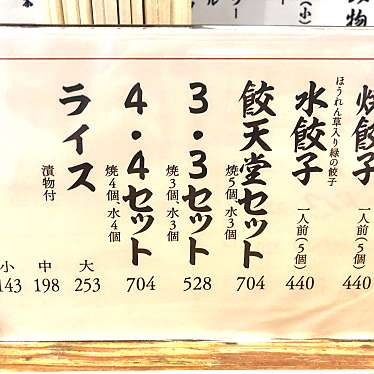 焼餃子
一人前(5個)
440
ほうれん草入り緑の餃子
水餃子
一人前(5個)
440
餃天堂セット
焼5個、水3個
704
3・3セット
焼3個、水3個
528
4・4セット
焼4個、水4個
704
ライス
漬物付
大
253
中
198
小
143